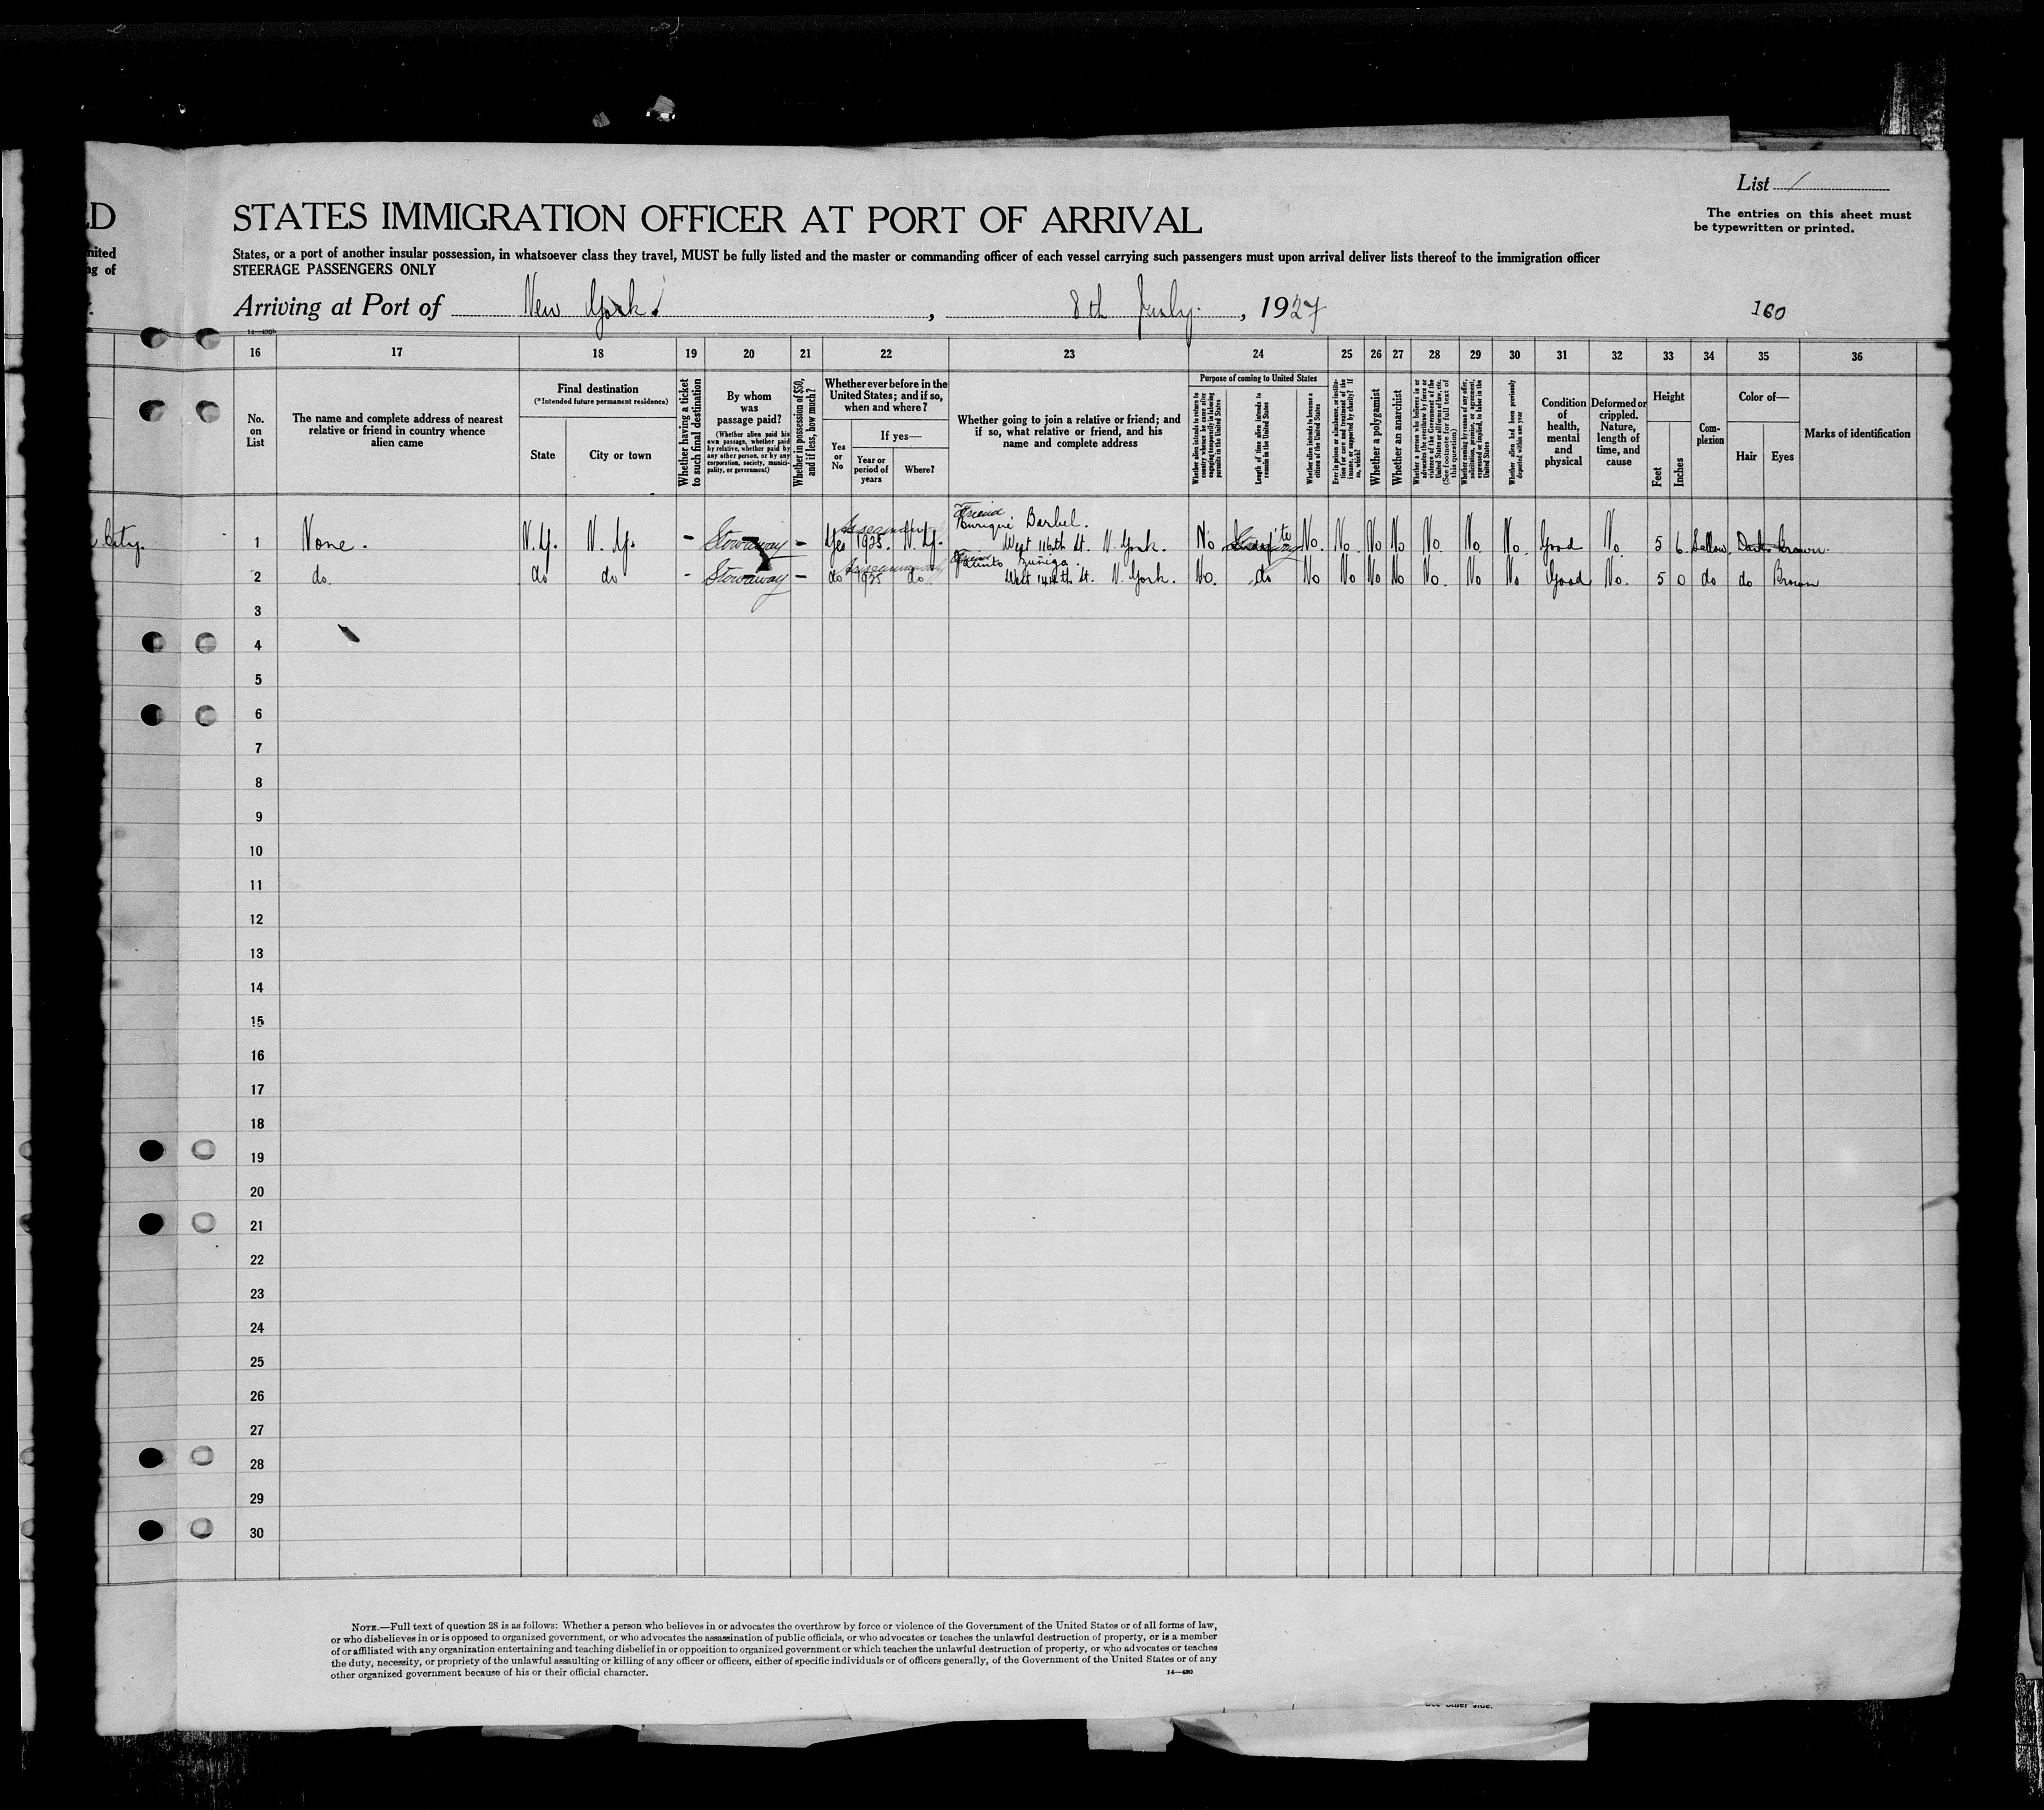 List /
The entries on this sheet must
be typewritten or printed.
ED
STATES IMMIGRATION OFFICER AT PORT OF ARRIVAL
nited
ng of
States, or a port of another insular possession, in whatsoever class they travel, MUST be fully listed and the master or commanding officer of each vessel carrying such passengers must upon arrival deliver lists thereof to the immigration officer
STEERAGE PASSENGERS ONLY
Arriving at Port of New York, 8th July, 1927
160
14—430b
16 17 18 19 20 21 22 23 24 25 26 27 28 29 30 31 32 33 34 35 36
No.
on
List
The name and complete address of nearest
relative or friend in country whence
alien came
Final destination
(*Intended future permanent residence)
State
City or town
Whether having a ticket
to such final destination
By whom
was
passage paid?
(Whether alien paid his
own passage, whether paid
by relative, whether paid by
any other person, or by any
corporation, society, munici-
pality, or government)
Whether in possession of $50,
and if less, how much?
Whether ever before in the
United States; and if so,
when and where?
Yes
or
No
If yes—
Year or
period of
years
Where?
Whether going to join a relative or friend; and
if so, what relative or friend, and his
name and complete address
Purpose of coming to United States
Whether alien intends to return to
country whence he came after
engaging temporarily in laboring
pursuits in the United States
Length of time alien intends to
remain in the United States
Whether alien intends to become a
citizen of the United States
Ever in prison or almshouse, or institu-
tion for care and treatment of the
insane, or supported by charity? If
so, which?
Whether a polygamist
Whether an anarchist
Whether a person who believes in or
advocates the overthrow by force or
violence of the Government of the
United States or all forms of law, etc.
(See footnote for full text of
this question)
Whether coming by reason of any offer,
solicitation, promise, or agreement,
expressed or implied, to labor in the
United States
Whether alien had been previously
deported within one year
Condition
of
health,
mental
and
physical
Deformed or
crippled.
Nature,
length of
time, and
cause
Height
Feet
Inches
Com-
plexion
Color of—
Hair
Eyes
Marks of identification
Friend
Enrique Barbel.
City. 1 None. N.Y. N.Y. - Stowaway - Yes 1925. N.Y. West 116th St. N. York. No No. No. No No No. No. No. Good No. 5 6 Sallow Dark Brown
Friend
Zuniga.
2 do. do do - Stowaway - do 1925 do. West 144th St. N. York. No. do No No No No No. No No Good No. 5 0 do do Brown
3
4
5
6
7
8
9
10
11
12
13
14
15
16
17
18
19
20
21
22
23
24
25
26
27
28
29
30
NOTE.—Full text of question 28 is as follows: Whether a person who believes in or advocates the overthrow by force or violence of the Government of the United States or of all forms of law,
or who disbelieves in or is opposed to organized government, or who advocates the assassination of public officials, or who advocates or teaches the unlawful destruction of property, or is a member
of or affiliated with any organization entertaining and teaching disbelief in or opposition to organized government or which teaches the unlawful destruction of property, or who advocates or teaches
the duty, necessity, or propriety of the unlawful assaulting or killing of any officer or officers, either of specific individuals or of officers generally, of the Government of the United States or of any
other organized government because of his or their official character.
14—430
See other side.